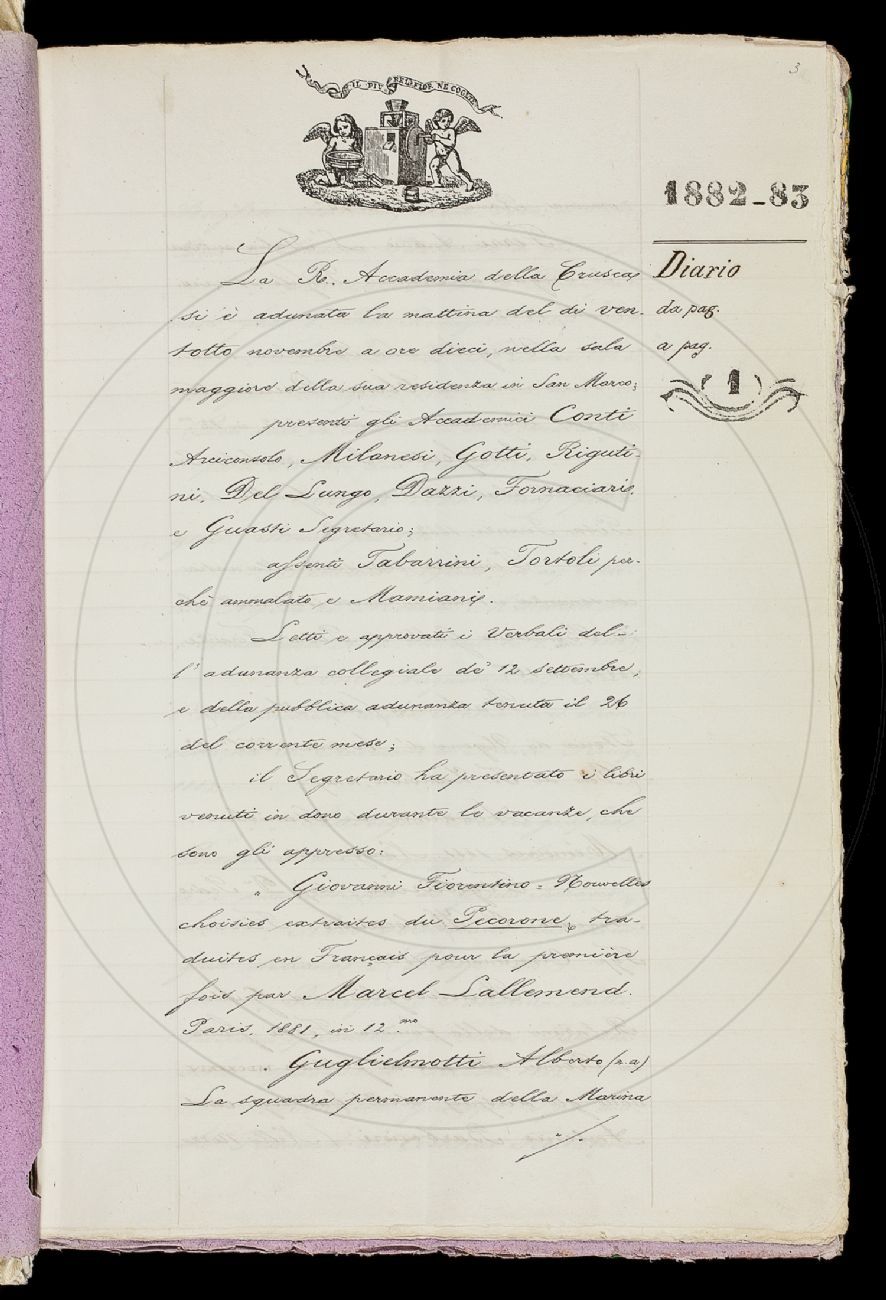 3
IL PIÙ BEL FIOR NE COGLIE
1882-83
Diario
da pag.
a pag.
1
La R. Accademia della Crusca,
si è adunata la mattina del dì ven-
totto novembre a ore dieci, nella sala
maggiore della sua residenza in San Marco;
presenti gli Accademici Conti
Arciconsolo, Milanesi, Gotti, Riguti-
ni, Del Lungo, Dazzi, Fornaciari,
e Guasti Segretario;
assenti Tabarrini, Tortoli per-
chè ammalato, e Mamiani.
Letti e approvati i Verbali del-
l'adunanza collegiale de' 12 settembre,
e della pubblica adunanza tenuta il 26
del corrente mese;
il Segretario ha presentato i libri
venuti in dono durante le vacanze, che
sono gli appresso:
„ Giovanni Fiorentino = Nouvelles
choisies extraites du Pecorone, tra-
duites en Français pour la première
fois par Marcel Lallemend.
Paris, 1881, in 12.mo
„ Guglielmotti Alberto (n.a)
La squadra permanente della Marina
./.